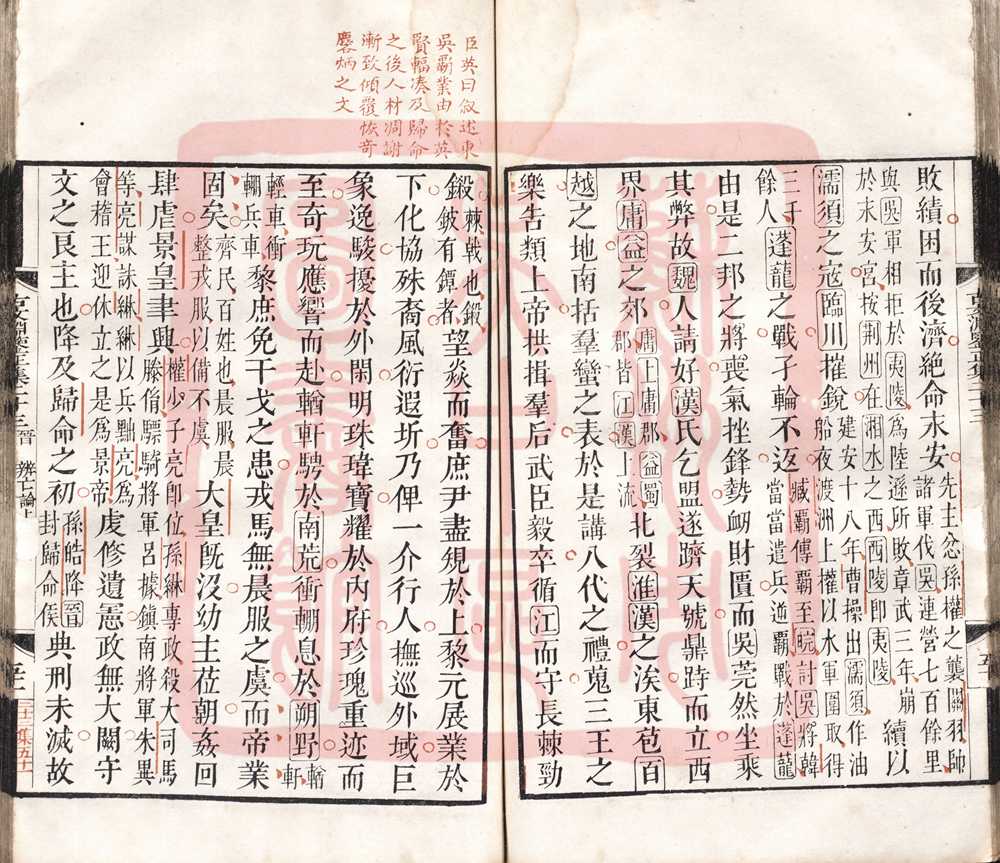 臣英曰叙述東
吳霸業由於英
賢輻凑及歸命
之後人材凋謝
漸致傾覆恢奇
麐炳之文
敗績困而後濟絕命永安先主忿孫權之襲關羽帥諸軍伐吳連營七百餘里
與吳軍相拒於夷陵為陸遜所敗章武三年崩於永安宮按荆州在湘水之西西陵即夷陵續以
濡須之寇臨川摧銳建安十八年曹操出濡須作油船夜渡洲上權以水軍圍取得
三千餘人蓬龍之戰孑輪不返臧霸傳霸至皖討吳將韓當當遣兵逆霸戰於蓬龍
由是二邦之將喪氣挫鋒勢衂財匱而吳莞然坐乘
其弊故魏人請好漢氏乞盟遂躋天號鼎跱而立西
界庸益之郊庸上庸郡益蜀郡皆江漢上流北裂淮漢之涘東苞百
越之地南括羣蠻之表於是講八代之禮蒐三王之
樂告類上帝拱揖羣后武臣毅卒循江而守長棘勁
鍛棘戟也鍛鈹有鐔者望焱而奮庶尹盡規於上黎元展業於
下化協殊裔風衍遐圻乃俾一介行人撫巡外域巨
象逸駿擾於外閑明珠瑋寶耀於內府珍瑰重迹而
至奇玩應響而赴輶軒騁於南荒衝輣息於朔野輶軒
輕車衝輣兵車黎庶免干戈之患戎馬無晨服之虞而帝業
固矣齊民百姓也晨服晨整戎服以備不虞大皇既沒幼主莅朝姦回
肆虐景皇聿興權少子亮即位孫綝專政殺大司馬滕胤驃騎將軍呂據鎮南將軍朱異
等亮謀誅綝綝以兵黜亮為會稽王迎休立之是為景帝虔修遺憲政無大闕守
文之良主也降及歸命之初孫皓降晉封歸命侯典刑未滅故